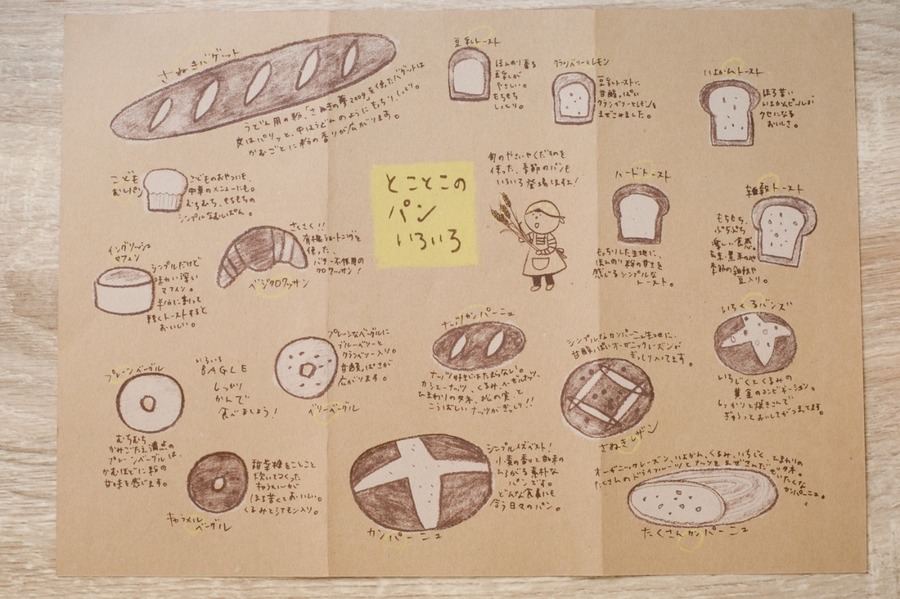 さぬきバゲット
うどん用の粉、「さぬきの夢2009」を使ったバゲットは
皮はパリッと、中はうどんのようにもっちりしっとり。
かむごとに粉の香りが広がります。
豆乳トースト
ほんのり香る
豆乳が
やさしい。
もちもち
しっとり。
クランベリーとレモン
豆乳トーストに
甘酸っぱい
クランベリーとレモンを
まぜこみました。
いよかんトースト
ほろ苦い
いよかんピールが
クセになる
おいしさ。
こども
むしパン
こどものおやつにも、
中華のメニューにも。
むちむち、もちもちの
シンプルなむしぱん。
とことこの
パン
いろいろ
旬のやさいやくだものを
使った、季節のパンも
いろいろ登場しますよ!
ハードトースト
もっちりした生地に、
ほんのり粉の甘さを
感じるシンプルな
トースト。
雑穀トースト
もちもち、
ぷちぷち
楽しい食感。
玄米、黒米や
季節の雑穀や
豆入り。
イングリッシュ
マフィン
シンプルだけど
味わい深い
マフィン。
半分に割って
軽くトーストすると
おいしい。
さくさく!!
有機ショートニングを
使った、
バター不使用の
クロワッサン!
ベジクロワッサン
プレーンベーグル
むちむち
かみごたえ満点の
プレーンベーグルは、
かむほどに粉の
甘味を感じます。
いろいろ
BAGLE
しっかり
かんで
食べましょう!
プレーンなベーグルに
ブルーベリーと
クランベリー入り。
甘酸っぱさが
広がります。
ベリーベーグル
ナッツカンパーニュ
ナッツ好きにはたまらない。
カシューナッツ、くるみ、ヘーゼルナッツ、
ひまわりのタネ、松の実、と
こうばしいナッツがぎっしり!!
シンプルなカンパーニュ生地に、
甘酸っぱいオーガニックレーズンが
ぎっしり入ってます。
さぬきレザン
いちくるバンズ
いちじくとくるみの
黄金のコンビネーション。
しっかりと焼きこんで
ぎゅうっとおいしさがつまってます。
キャラメル
ベーグル
甜菜糖をことこと
炊いてつくった
キャラメルが
ほろ苦くておいしい。
くるみとシナモン入り。
カンパーニュ
シンプルイズベスト!
小麦の香りと酸味の
ひろがる素朴な
パンです。
どんな食事にも
合う日々のパン。
オーガニックレーズン、いよかん、くるみ、いちじく、ひまわりの
たくさんのドライフルーツとナッツをまぜこんだ
カンパーニュ。
たくさんカンパーニュ